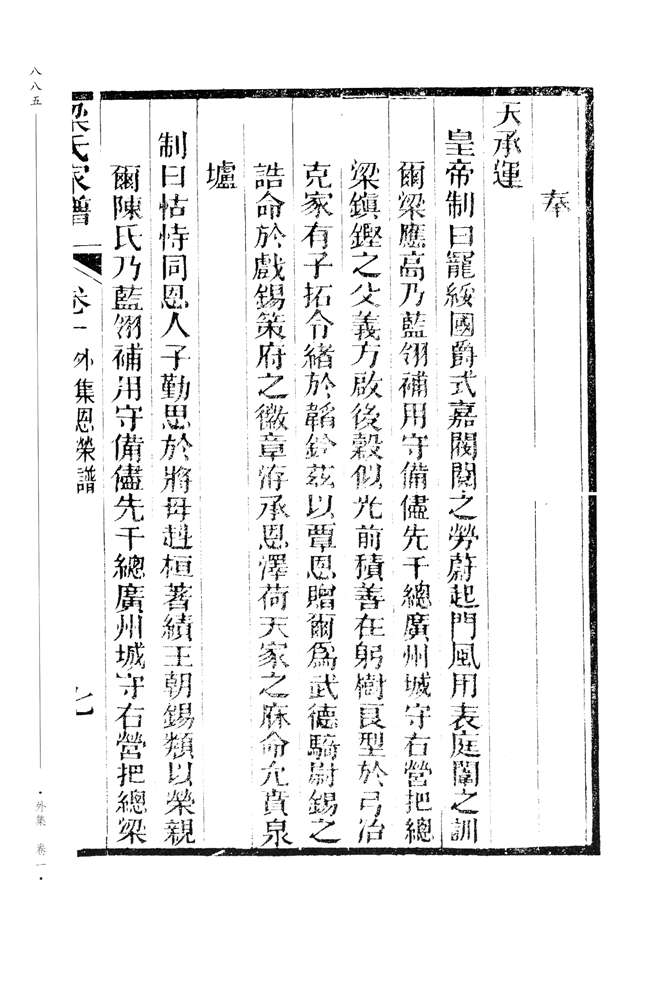 奉
天承運
皇帝制曰寵綏國爵式嘉閥閱之勞蔚起門風用表庭闈之訓
爾梁應高乃藍翎補用守備儘先千總廣州城守右營把總
梁鎮鏗之父義方啟後穀似光前積善在躬樹良型於弓冶
克家有子拓令緒於韜鈐茲以覃恩贈爾爲武德騎尉錫之
誥命於戲錫策府之徽章洊承恩澤荷天家之庥命允賁泉
壚
制曰怙恃同恩人子勤思於將母赳桓著績王朝錫類以榮親
爾陳氏乃藍翎補用守備儘先千總廣州城守右營把總梁
梁氏家譜
卷一外集恩榮譜
七
八八五
·外集 卷一·